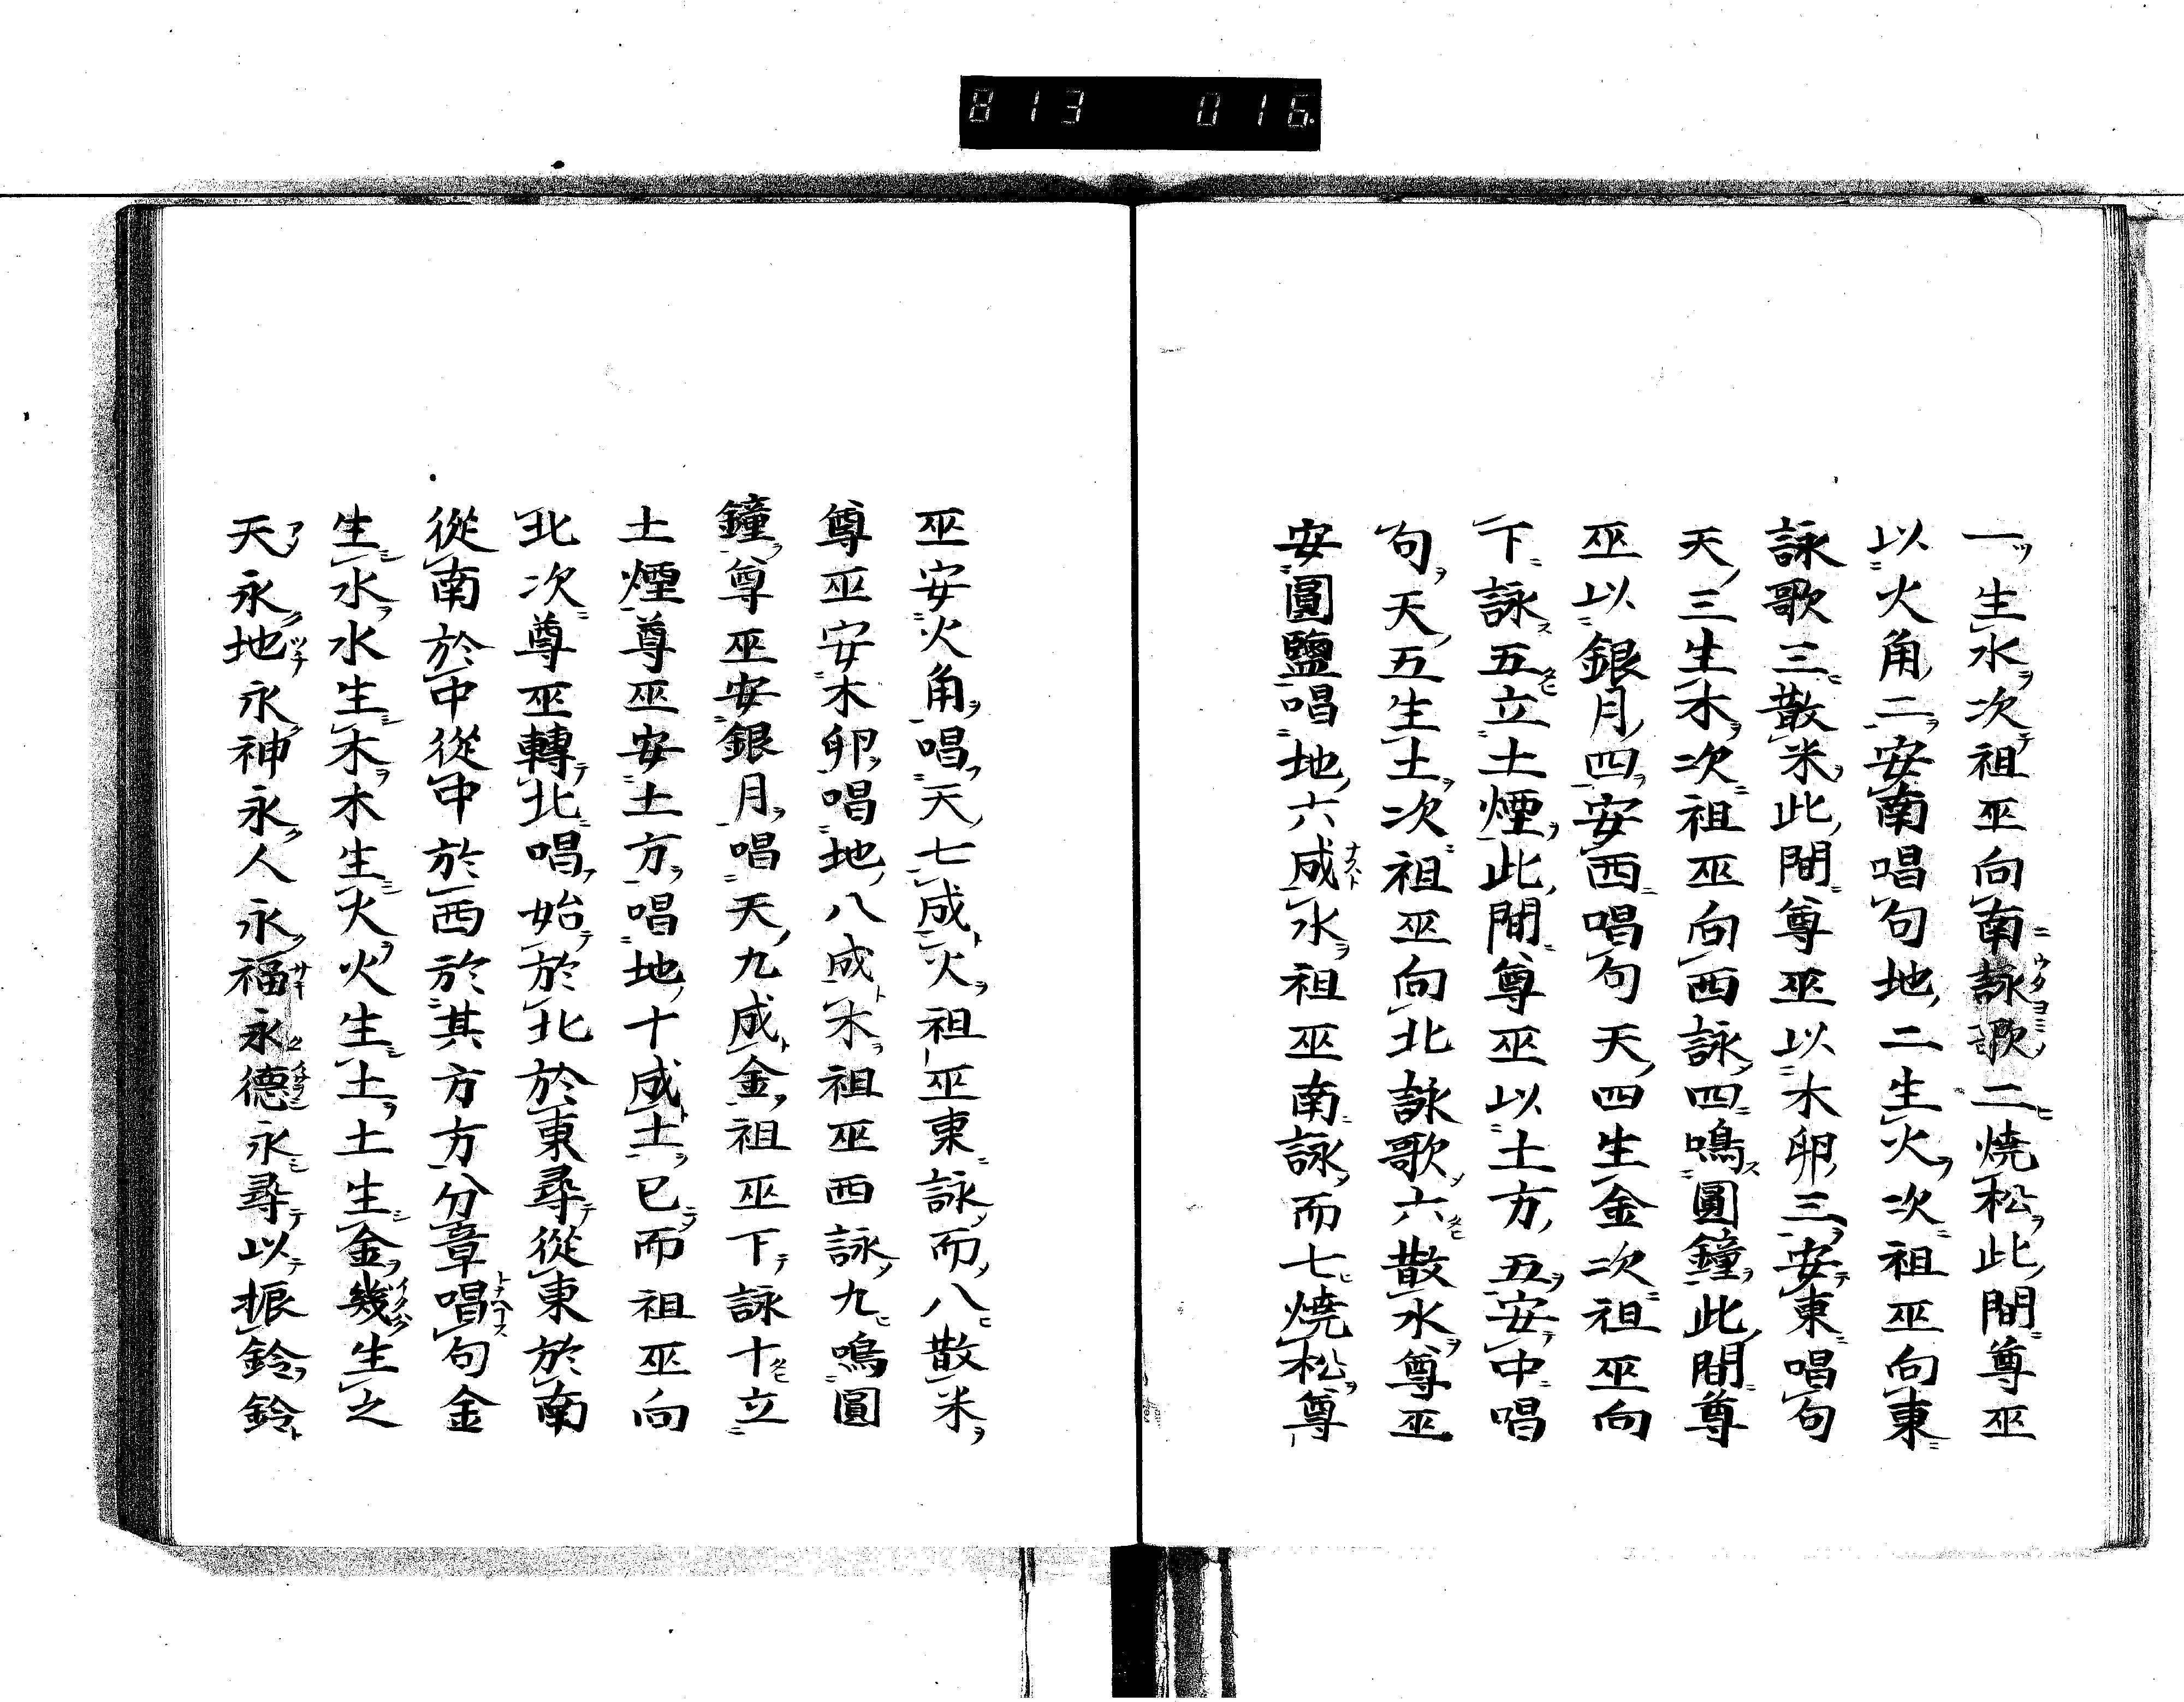 813 016
一生水次祖巫向南詠歌二焼松此間尊巫
以火角二安南唱句地二生火次祖巫向東
詠歌三散米此間尊巫以木卵三安東唱句
天三生木次祖巫向西詠四鳴圓鐘此間尊
巫以銀月四安西唱句天四生金次祖巫向
下詠五立土煙此間尊巫以土方五安中唱
句天五生土次祖巫向北詠歌六散水尊巫
安圓鹽唱地六成水祖巫南詠而七焼松尊
巫安火角唱天七成火祖巫東詠而八散米
尊巫安木卵唱地八成木祖巫西詠九鳴圓
鐘尊巫安銀月唱天九成金祖巫下詠十立
土煙尊巫安土方唱地十成土已而祖巫向
北次尊巫轉北唱始於北於東尋從東於南
從南於中從中於西於其方方分章唱句金
生水水生木木生火火生土土生金幾生之
天永地永神永人永福永德永尋以振鈴鈴